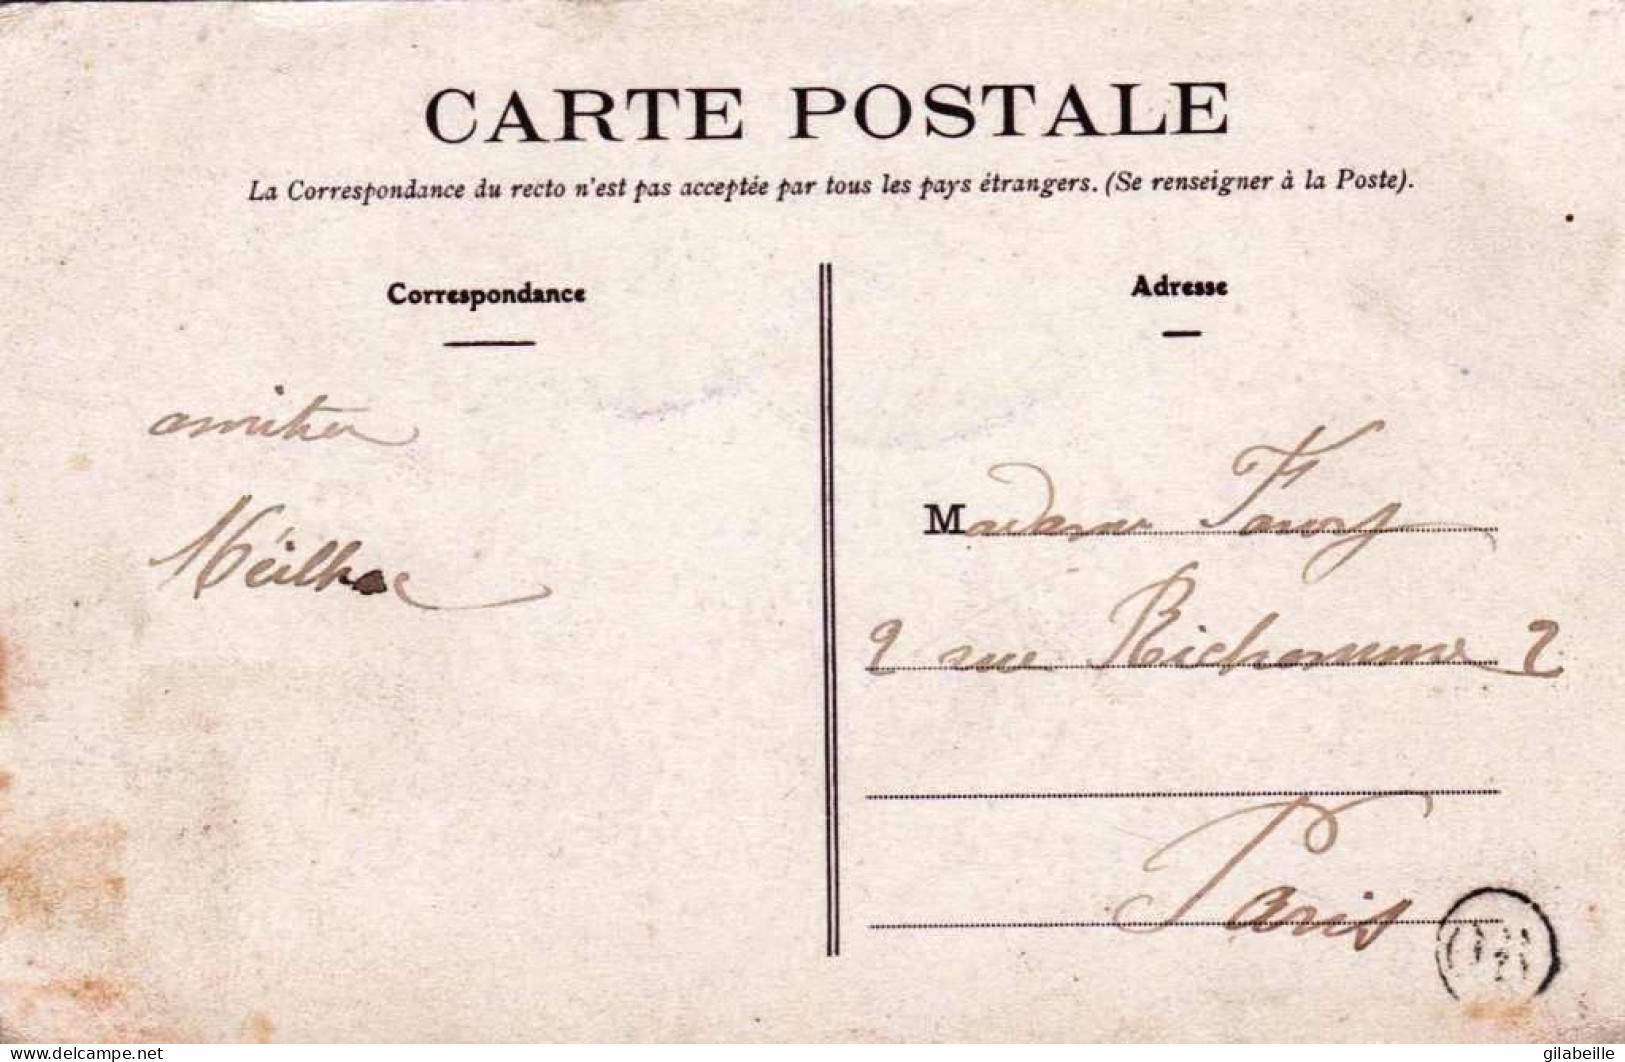 CARTE POSTALE
La Correspondance du recto n'est pas acceptée par tous les pays étrangers. (Se renseigner à la Poste).
Correspondance
amitiés
Méilhac
Adresse
Madame Faury
2 rue Richomme 2
Paris
delcampe.net
gilabeille